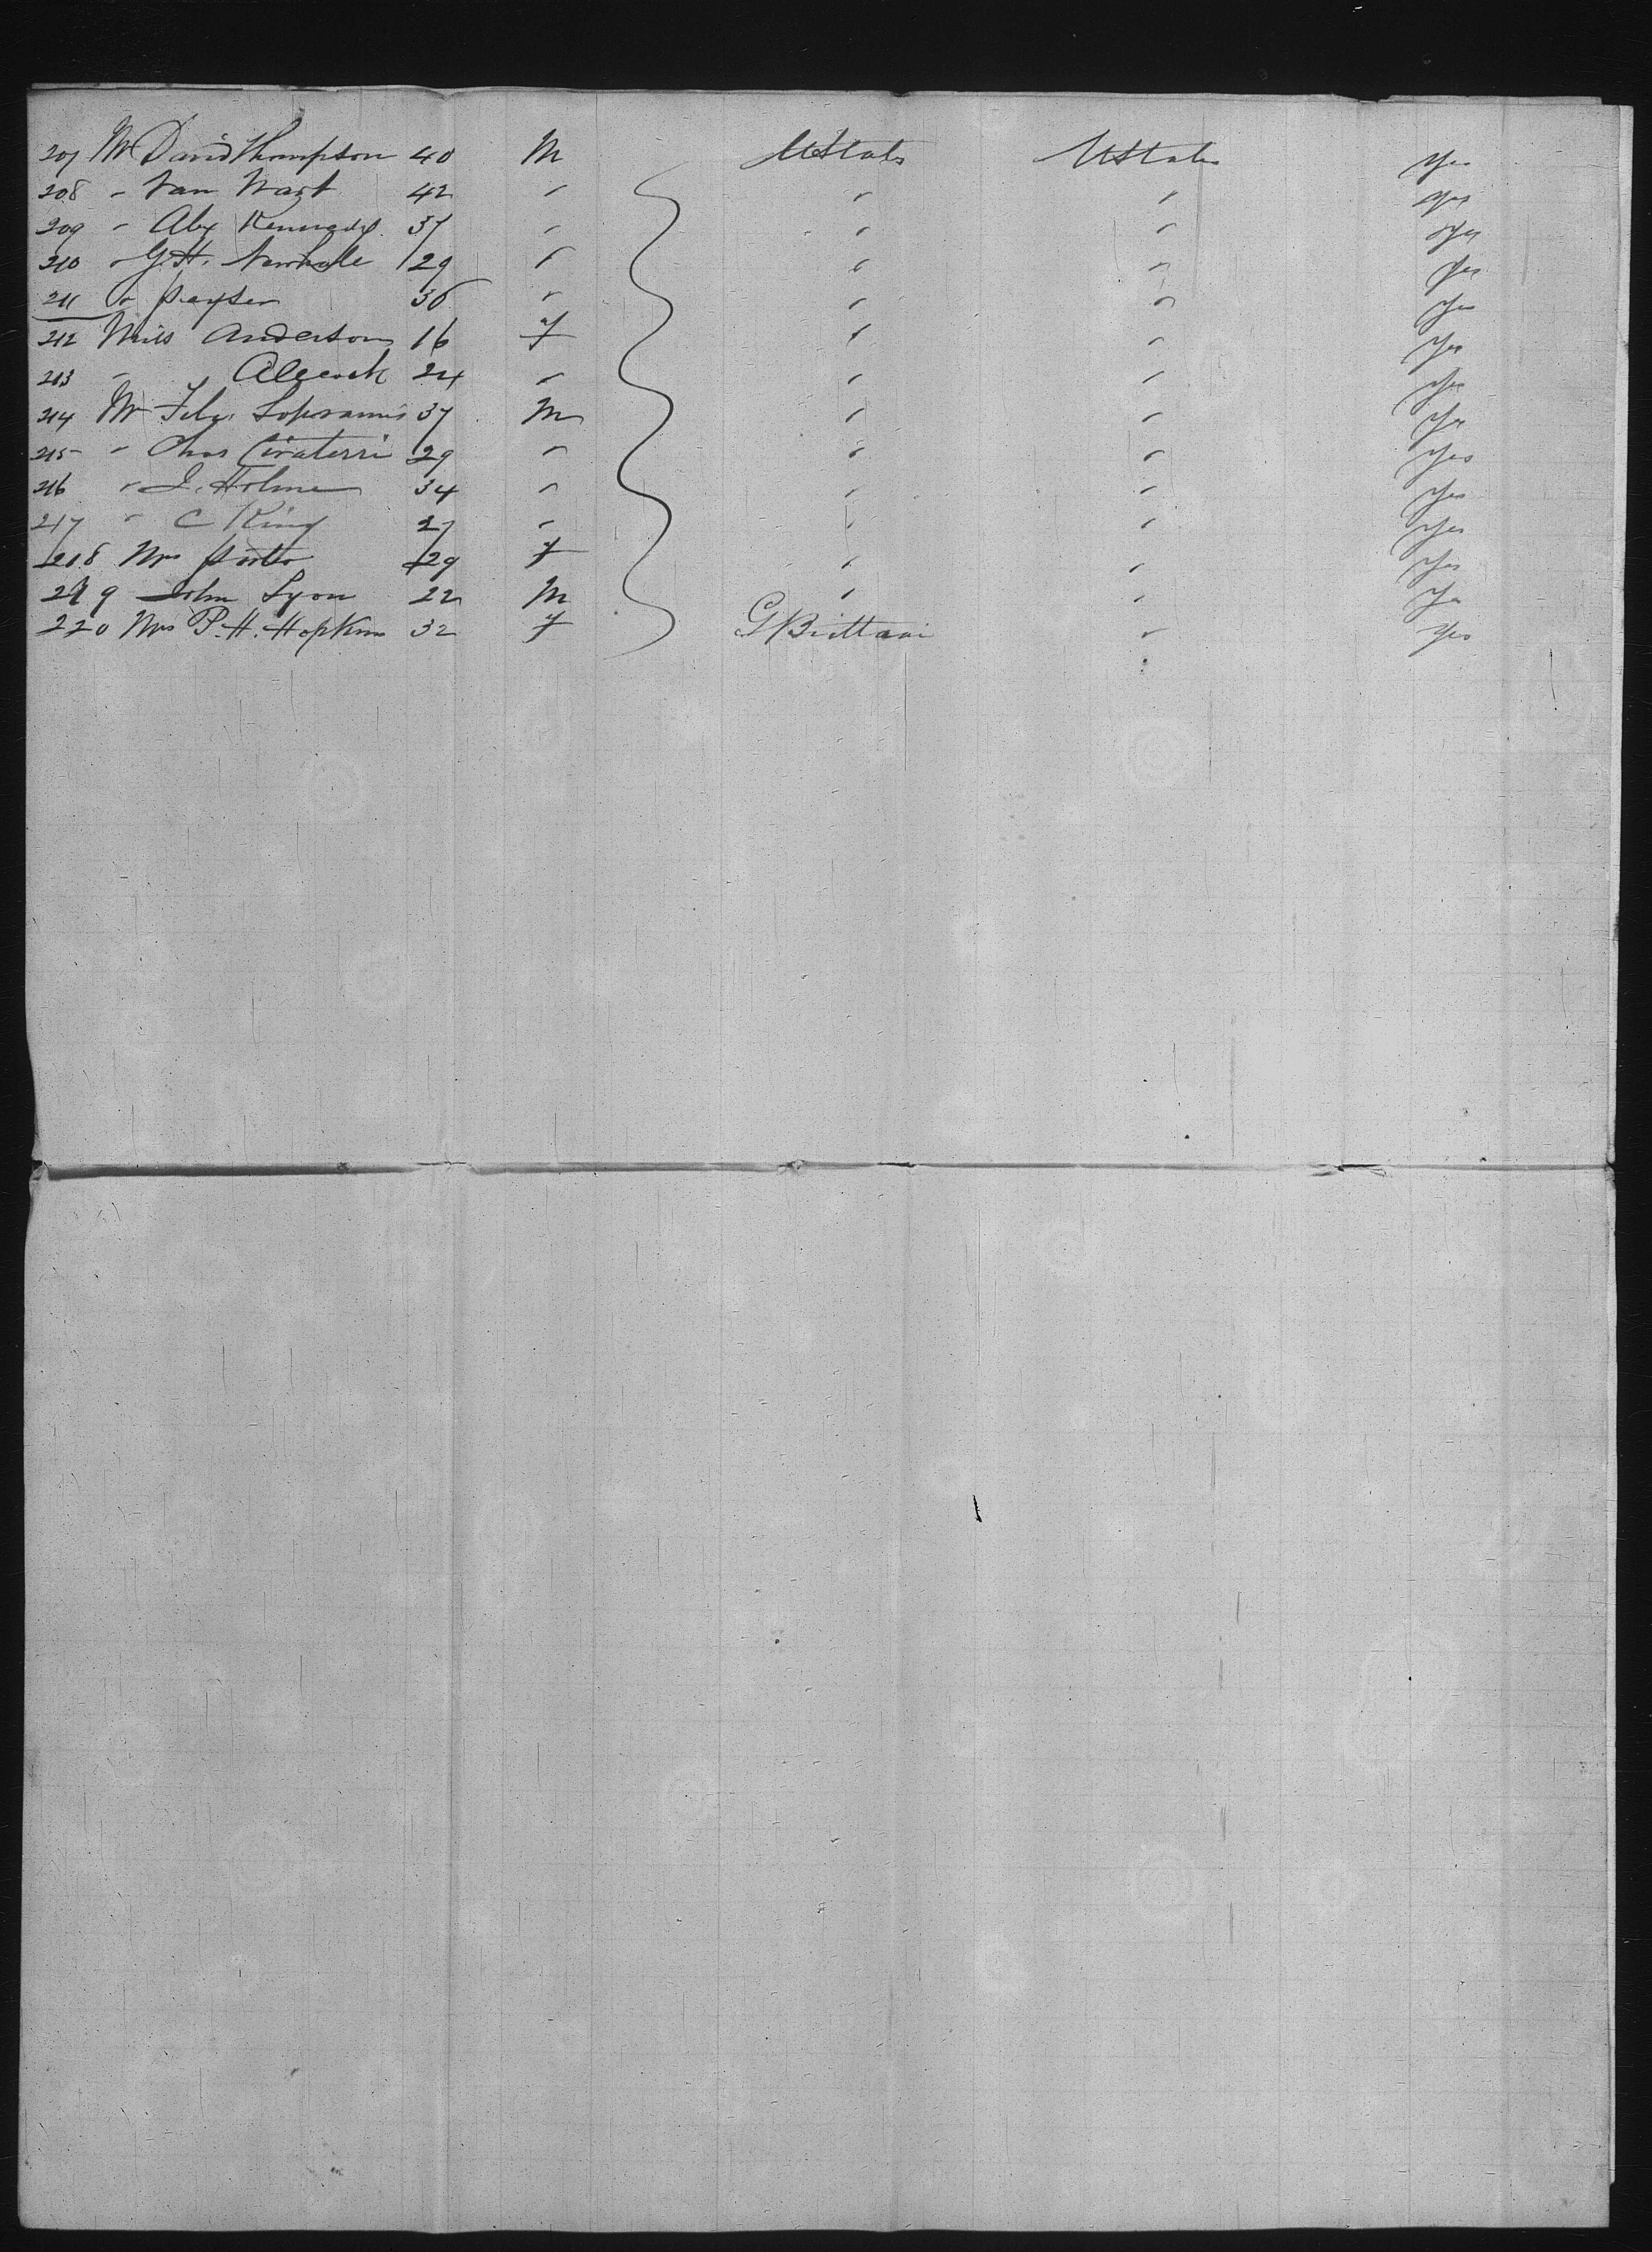 207 Mr David Thompson 40 M UStates UStates yes
208 " Van Wart 42 " " " yes
209 " Alex Kennedy 37 " " " yes
210 " G.H. Newhale 29 " " " yes
211 " Payser 36 " " " yes
212 Miss Anderson 16 f " " yes
213 " Alcock 24 " " " yes
214 Mr 37 M " " yes
215 " Chas 29 " " " yes
216 " J. Holme 34 " " " yes
217 " C King 27 " " " yes
218 Mrs 29 f " " yes
219 John Lyon 22 M " " yes
220 Mrs P.H. Hopkins 32 f G Brittain " yes